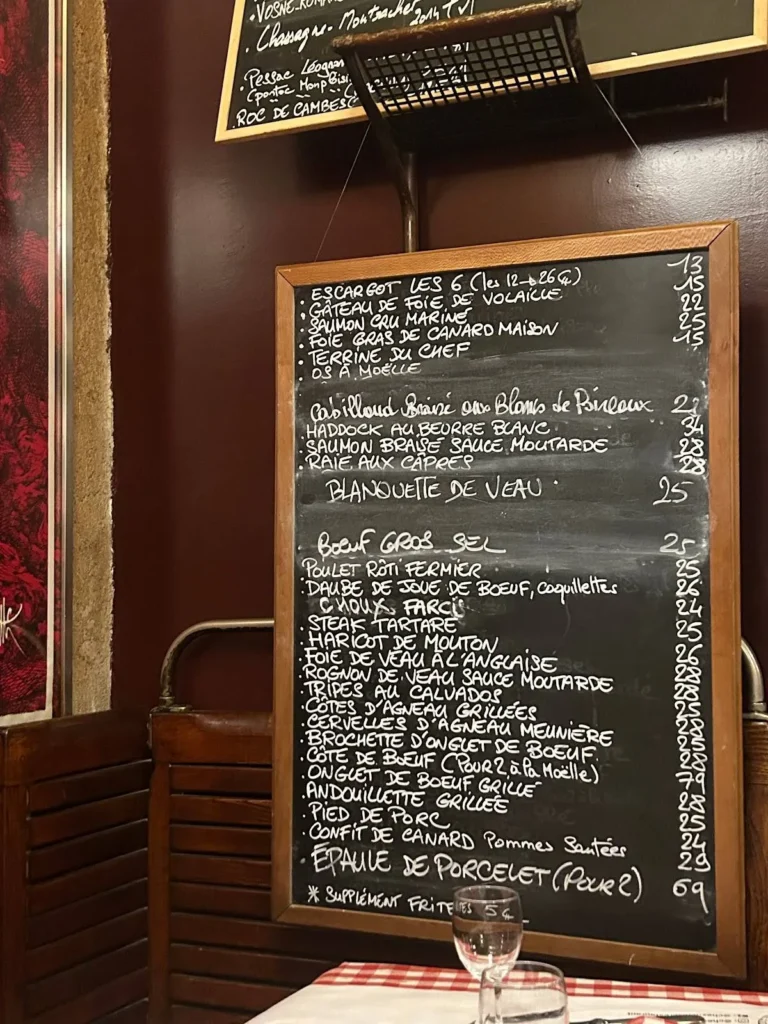 VOSNE-ROMA
Chassagne-Montrachet 2014
Pessac Léognan
ROC DE CAMBES
ESCARGOT LES 6 (les 12→26€) 13
GÂTEAU DE FOIE DE VOLAILLE 15
SAUMON CRU MARINÉ 22
FOIE GRAS DE CANARD MAISON
TERRINE DU CHEF
OS À MOËLLE
Cabillaud Braisé aux Blancs de Poireaux
HADDOCK AU BEURRE BLANC
SAUMON BRAISÉ SAUCE MOUTARDE 28
RAIE AUX CÂPRES 28
BLANQUETTE DE VEAU 25
BOEUF GROS SEL 25
POULET RÔTI FERMIER 25
DAUBE DE JOUE DE BOEUF, coquillettes 26
CHOUX FARCI 24
STEAK TARTARE 25
HARICOT DE MOUTON 26
FOIE DE VEAU À L'ANGLAISE
ROGNON DE VEAU SAUCE MOUTARDE
TRIPES AU CALVADOS
CÔTES D'AGNEAU GRILLÉES
CERVELLES D'AGNEAU MEUNIÈRE
BROCHETTE D'ONGLET DE BOEUF
CÔTE DE BOEUF (POUR 2 à la Moëlle) 79
ONGLET DE BOEUF GRILLÉ 28
ANDOUILLETTE GRILLÉE 25
PIED DE PORC 24
CONFIT DE CANARD Pommes Sautées 29
ÉPAULE DE PORCELET (POUR 2) 69
* SUPPLÉMENT FRITES 5€